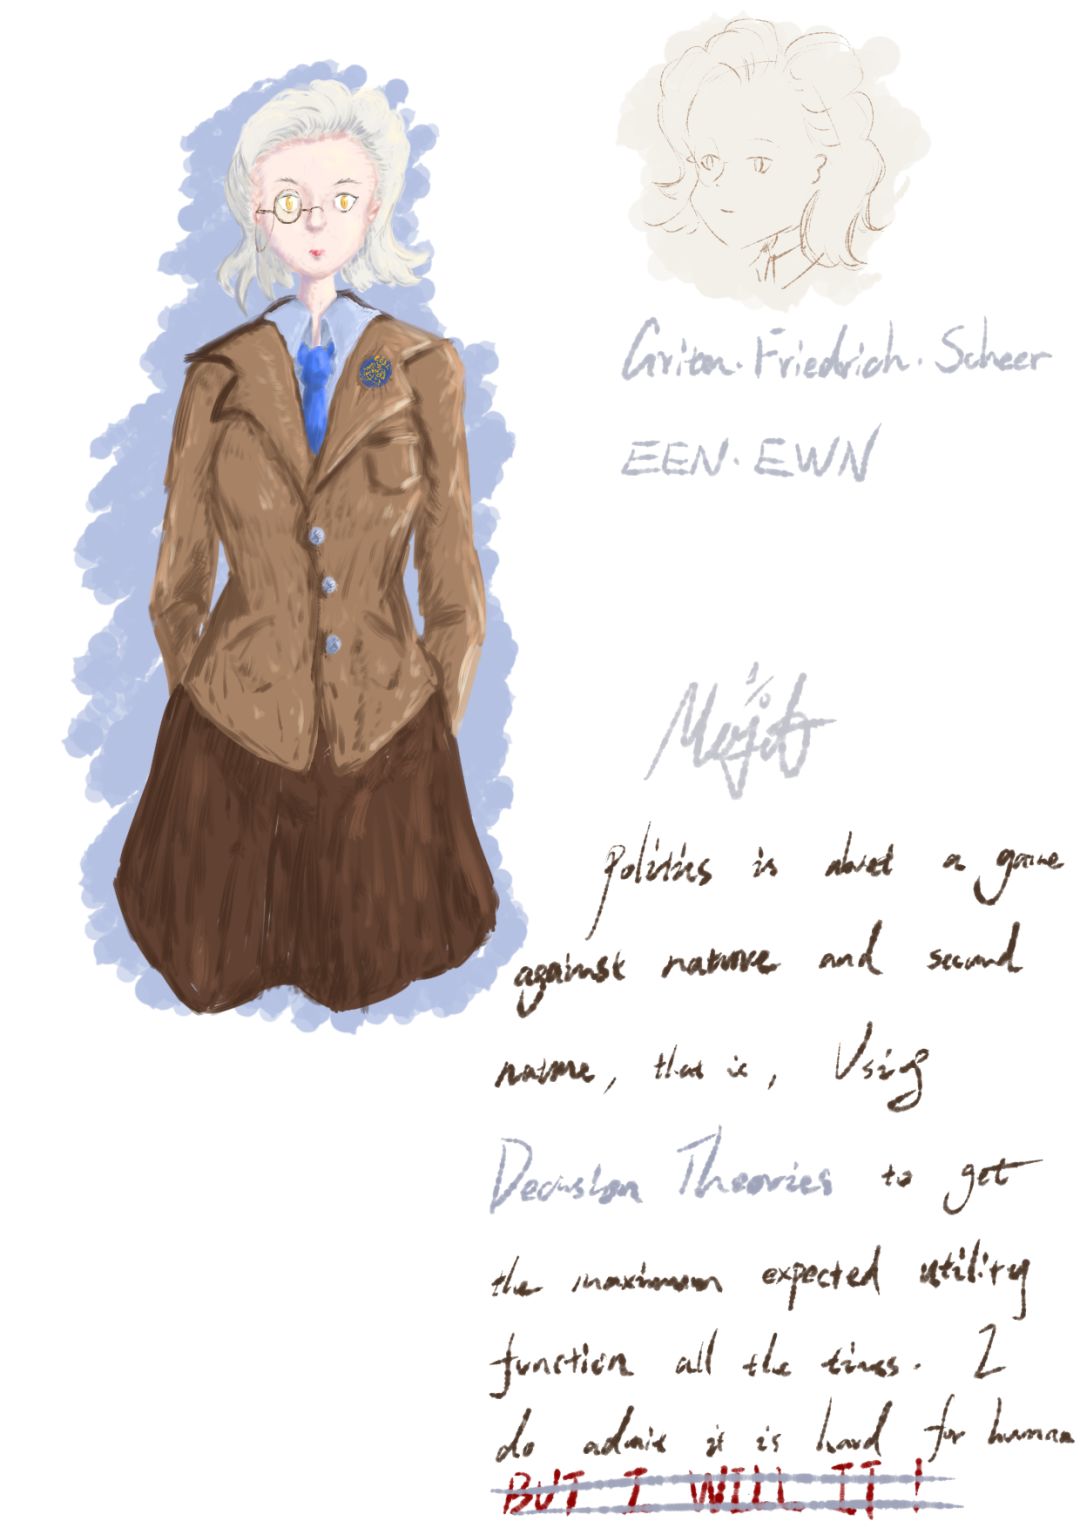 Griton. Friedrich. Scheer
EEN. EWN
Politics is about a game
against nature and second
nature, that is, Using
Decision Theories to get
the maximum expected utility
function all the times. I
do admit it is hard for human
BUT I WILL IT!